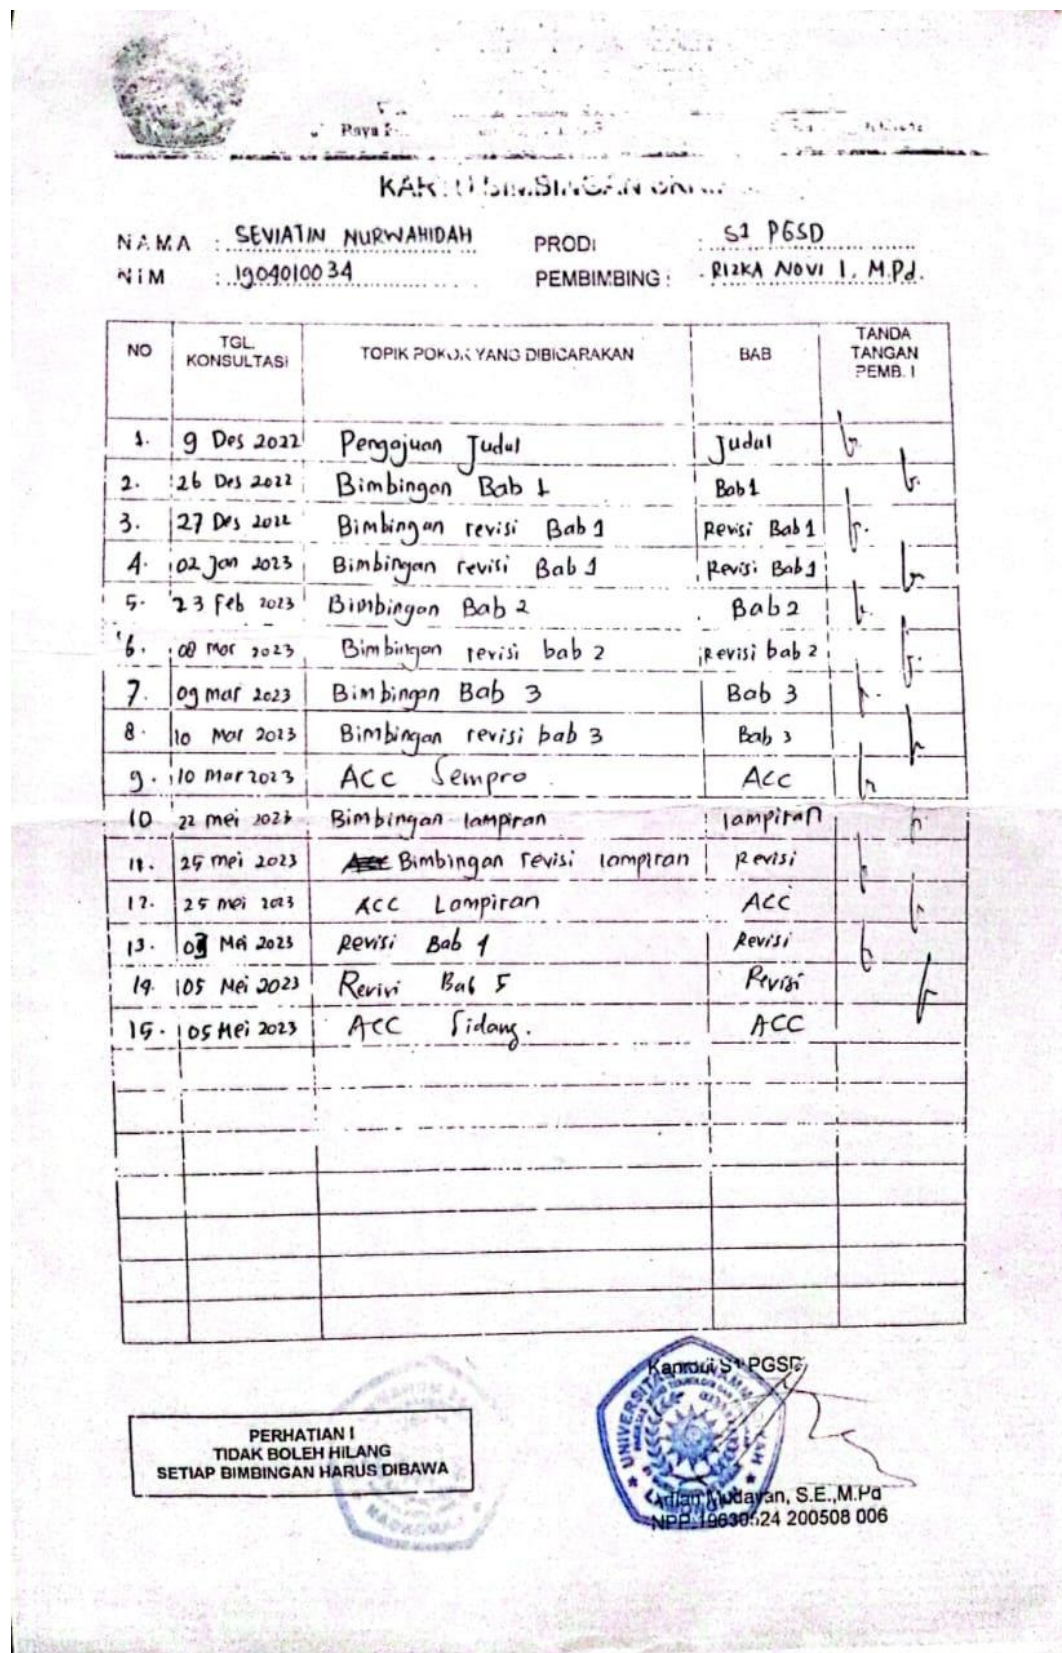 Raya
KARTU BIMBINGAN
NAMA : SEVIATIN NURWAHIDAH PRODI : S1 PGSD
NIM : 1904010034 PEMBIMBING : RIZKA NOVI I. M.Pd.
NO TGL. KONSULTASI TOPIK POKOK YANG DIBICARAKAN BAB TANDA TANGAN PEMB. I
1. 9 Des 2022 Pengajuan Judul Judul
2. 26 Des 2022 Bimbingan Bab 1 Bab 1
3. 27 Des 2022 Bimbingan revisi Bab 1 Revisi Bab 1
4. 02 Jan 2023 Bimbingan revisi Bab 1 Revisi Bab 1
5. 23 Feb 2023 Bimbingan Bab 2 Bab 2
6. 08 Mar 2023 Bimbingan revisi bab 2 Revisi bab 2
7. 09 mar 2023 Bimbingan Bab 3 Bab 3
8. 10 Mar 2023 Bimbingan revisi bab 3 Bab 3
9. 10 Mar 2023 ACC Sempro ACC
10 22 mei 2023 Bimbingan lampiran lampiran
11. 25 mei 2023 Bimbingan revisi lampiran Revisi
12. 25 mei 2023 ACC Lampiran ACC
13. Mei 2023 Revisi Bab 4 Revisi
14. 05 Mei 2023 Revisi Bab 5 Revisi
15. 05 Mei 2023 ACC Sidang. ACC
Kaprodi S1 PGSD
PERHATIAN !
TIDAK BOLEH HILANG
SETIAP BIMBINGAN HARUS DIBAWA
Mudayan, S.E.,M.Pd
NPP. 19630524 200508 006